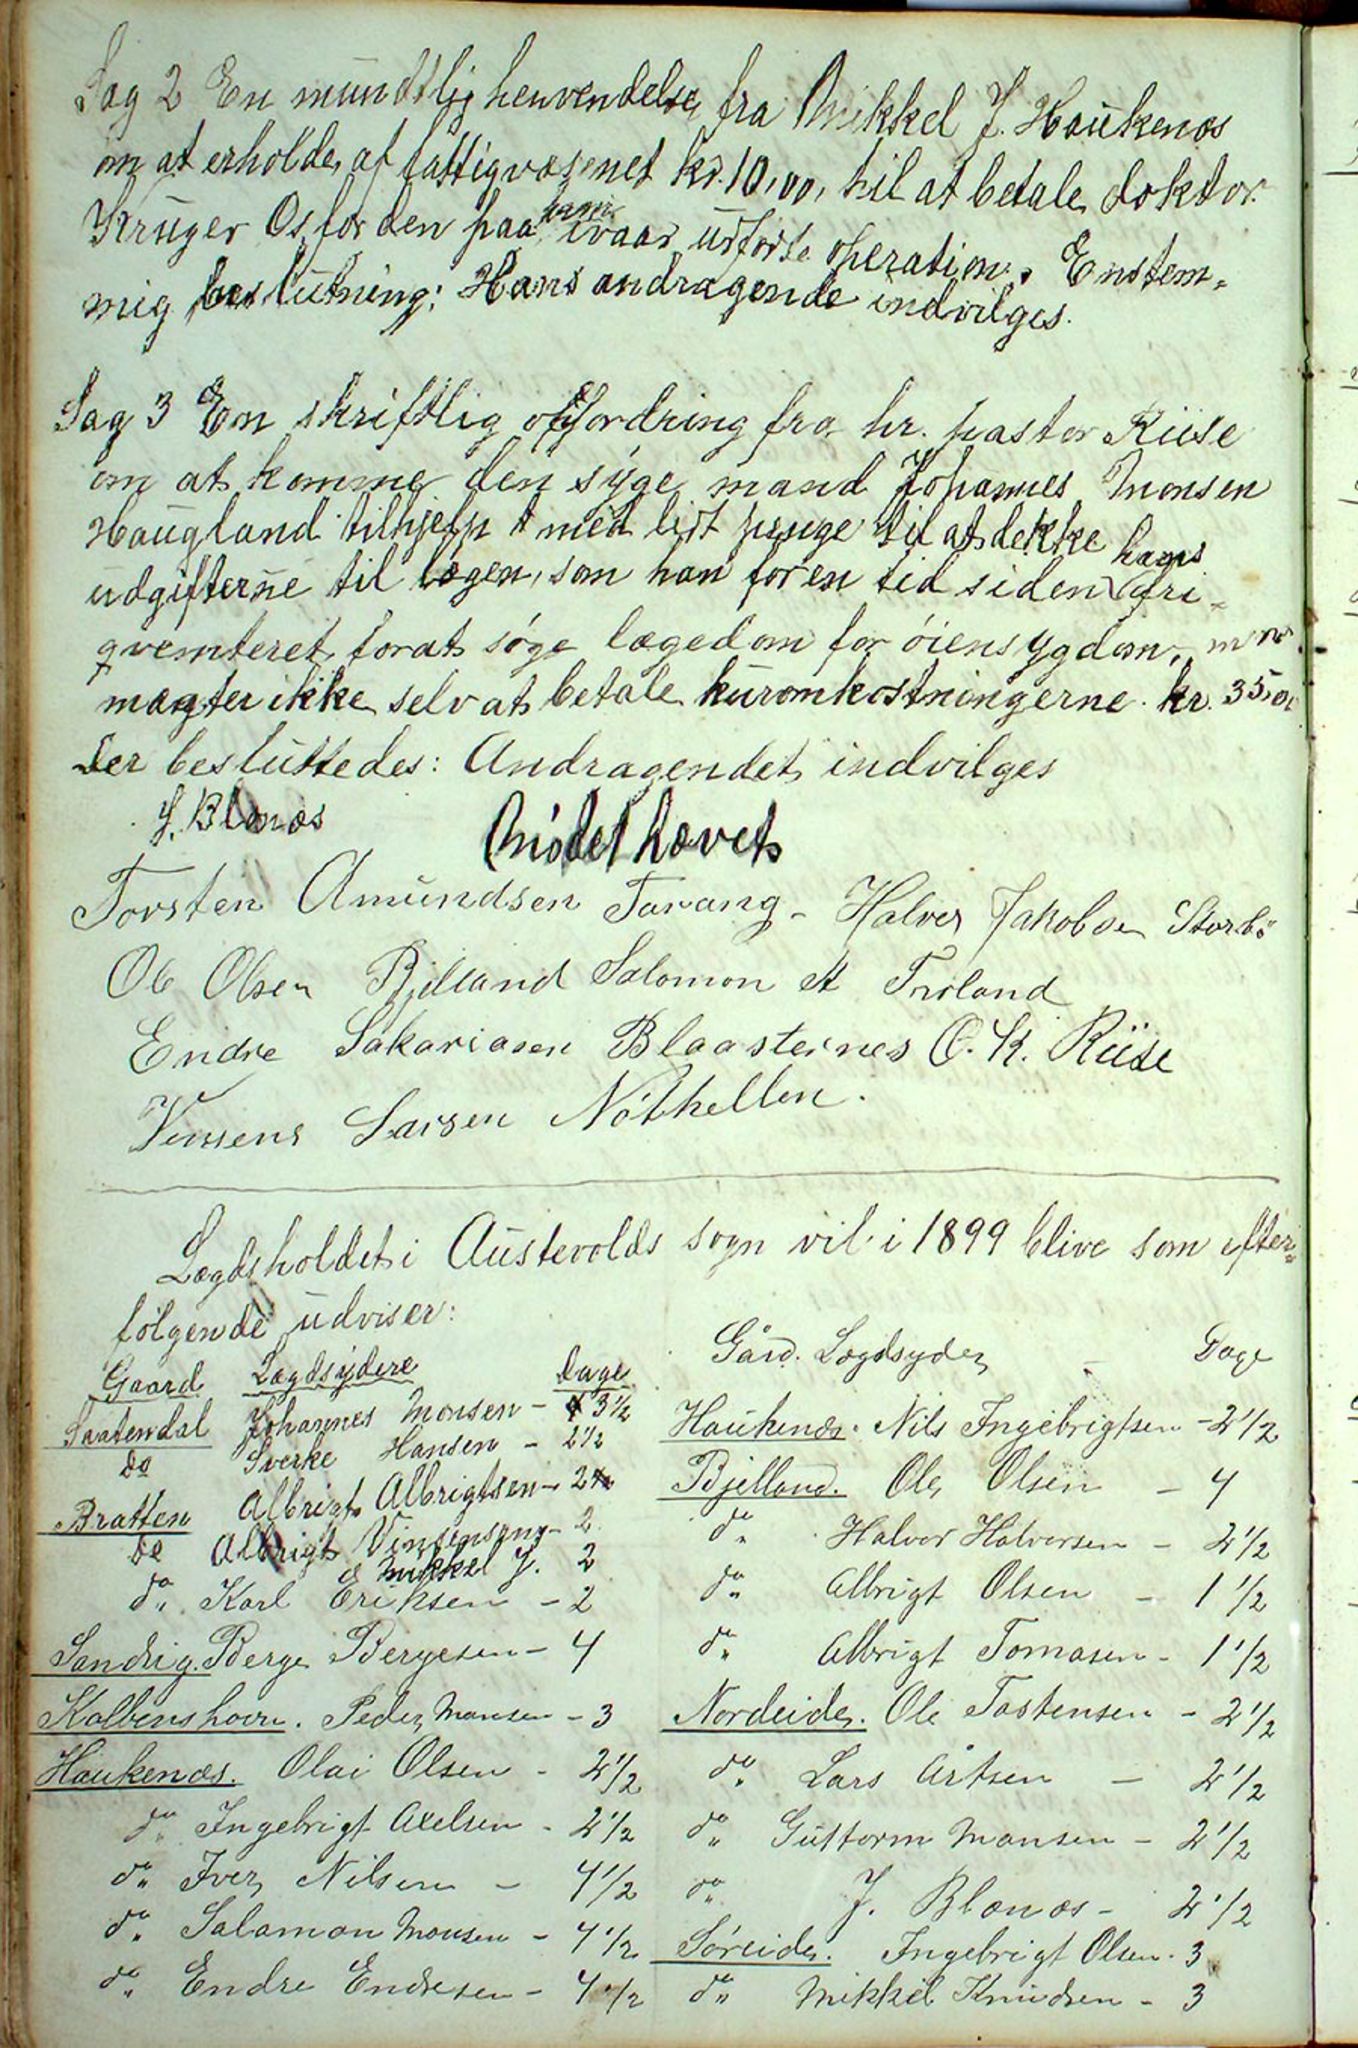 Sag 2 En mundtlig henvendelse fra Mikkel J. Haukenæs
om at erholde af fattigvæsenet kr. 10,00, til at betale doktor
Krüger Os, for den paa ham ivaar udførte operation. Enstem-
mig beslutning: Hans andragende indvilges.
Sag 3 En skriftlig opfordring fra hr. pastor Riise
om at komme den syge mand Johannes Monsen
Haugland tilhjelp med lidt penge til at dekke hans
udgifterne til lægen, som han for en tid siden fri-
qventeret forat søge lægedom for øiensygdom, men
mægter ikke selv at betale kuromkostningerne. kr. 35,0
Der besluttedes: Andragendet indvilges
J. Blænæs Mødet hævet
Torsten Amundsen Tarang - Halver Jakobsen Storbø
Ole Olsen Bjelland Salomon A Troland
Endre Sakariasen Blaasteines O. K. Riise
Vinsens Larsen Nøthellen.
Lægdsholdet i Austevolds sogn vil i 1899 blive som efter-
følgende udviser:
Gaard Lægdsydere Dage
Saatendal Johannes Monsen - 3 1/2
do Sverke Hansen - 2 1/2
Bratten Albrigt Albrigtsen - 2
do Albrigt Vinsensen - 2
& Mikkel J. 2
do Karl Eriksen - 2
Sandvig. Berge Bergesen - 4
Kolbenshavn. Peder Monsen - 3
Haukenæs. Olai Olsen - 2 1/2
do Ingebrigt Axelsen - 2 1/2
do Iver Nilsen - 4 1/2
do Salamon Monsen - 4 1/2
do Endre Endresen - 4 1/2
Gård. Lægdsyder - Dage
Haukenæs. Nils Ingebrigtsen - 2 1/2
Bjelland. Ole Olsen - 4
do Halvor Halvorsen - 2 1/2
do Albrigt Olsen - 1 1/2
do Albrigt Tomasen - 1 1/2
Nordeide. Ole Tostensen - 2 1/2
do Lars Artsen - 2 1/2
do Guttorm Monsen - 2 1/2
do J. Blænæs - 2 1/2
Søreide. Ingebrigt Olsen. 3
do Mikkel Knudsen - 3